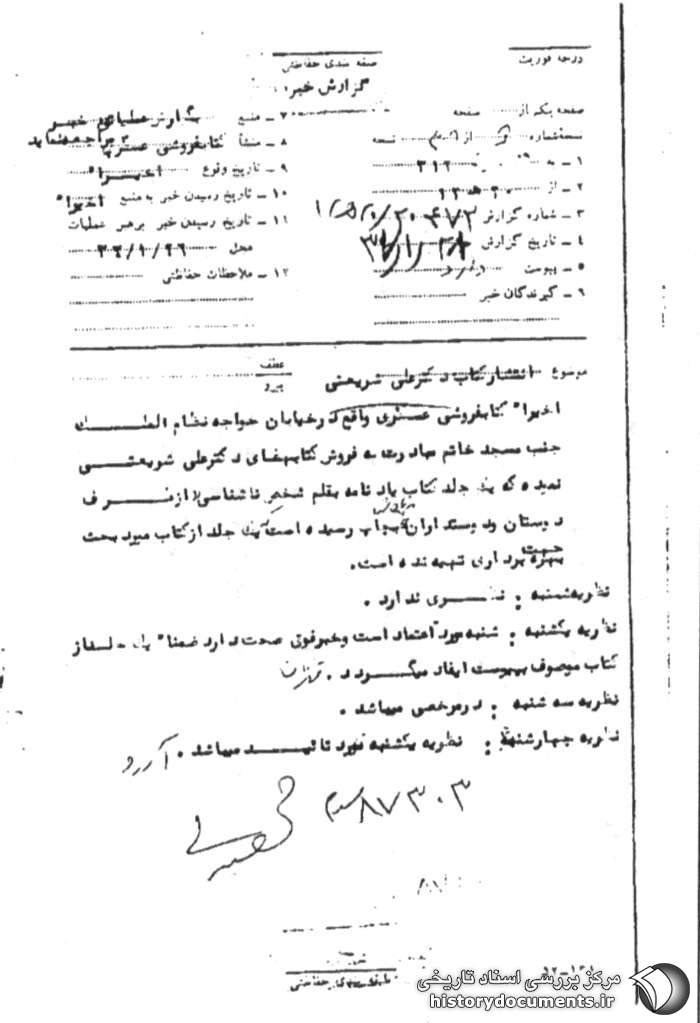 درجه فوریت
طبقه بندی حفاظتی
گزارش خبر
صفحه یکم از صفحه
نسخه شماره از نسخه
۱ ـ به ۳۱۲
۲ ـ از ۲۰ ه ۱۲
۳ ـ شماره گزارش ۲۰۴۷۲
۴ ـ تاریخ گزارش
۵ ـ پیوست دارد
۶ ـ گیرندگان خبر
۷ ـ منبع
۸ ـ منشأ کتابفروشی عسگری
۹ ـ تاریخ وقوع اخیرا"
۱۰ ـ تاریخ رسیدن خبر به منبع اخیرا"
۱۱ ـ تاریخ رسیدن خبر برهبر عملیات
محل ۳۶/۱/۲۶
۱۲ ـ ملاحظات حفاظتی
موضوع انتشار کتاب دکتر علی شریعتی
عطف
پیرو
اخیرا" کتابفروشی عسگری واقع در خیابان خواجه نظام الملک
جنب مسجد خاتم مبادرت به فروش کتابهای دکتر علی شریعتی
نمیده که یک جلد کتاب یاد نامه بقلم شخص ناشناسی از طرف
دوستان ودوستداران بچاپ رسیده است یک جلد از کتاب مورد بحث
جهت
بهره برداری تهیه شده است.
نظریه شنبه : نظری ندارد .
نظریه یکشنبه : شنبه مورد اعتماد است وخبر فوق صحت دارد ضمنا" یک جلد از
کتاب موصوف بپیوست ایفاد میگردد .
نظریه سه شنبه : درمرخصی میباشد .
نظریه چهارشنبه : نظریه یکشنبه مورد تائید میباشد .
۸۷۳۰۳
طبقه بندی حفاظتی
مرکز بررسی اسناد تاریخی
historydocuments.ir